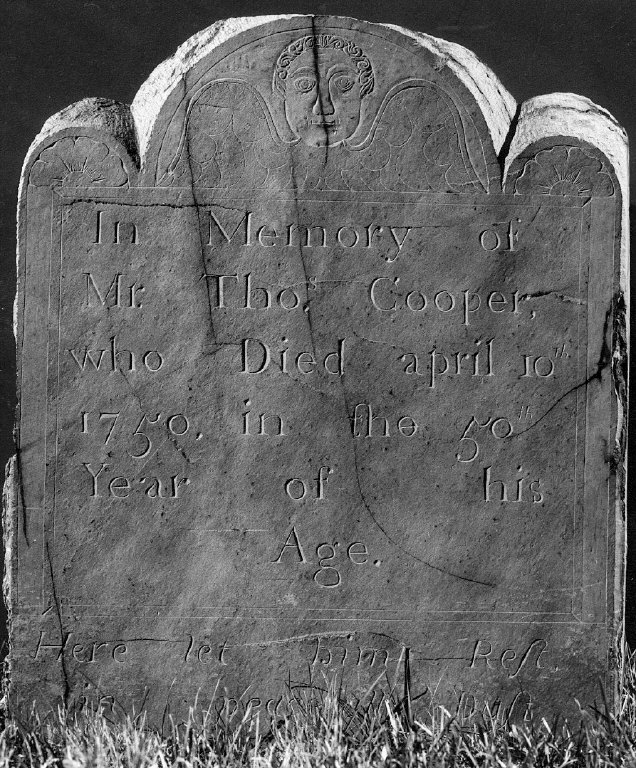 In Memory of
Mr. Tho.s Cooper,
who Died april 10th
1750, in the 50th
Year of his
Age.
Here let him Reſt
in Duſt